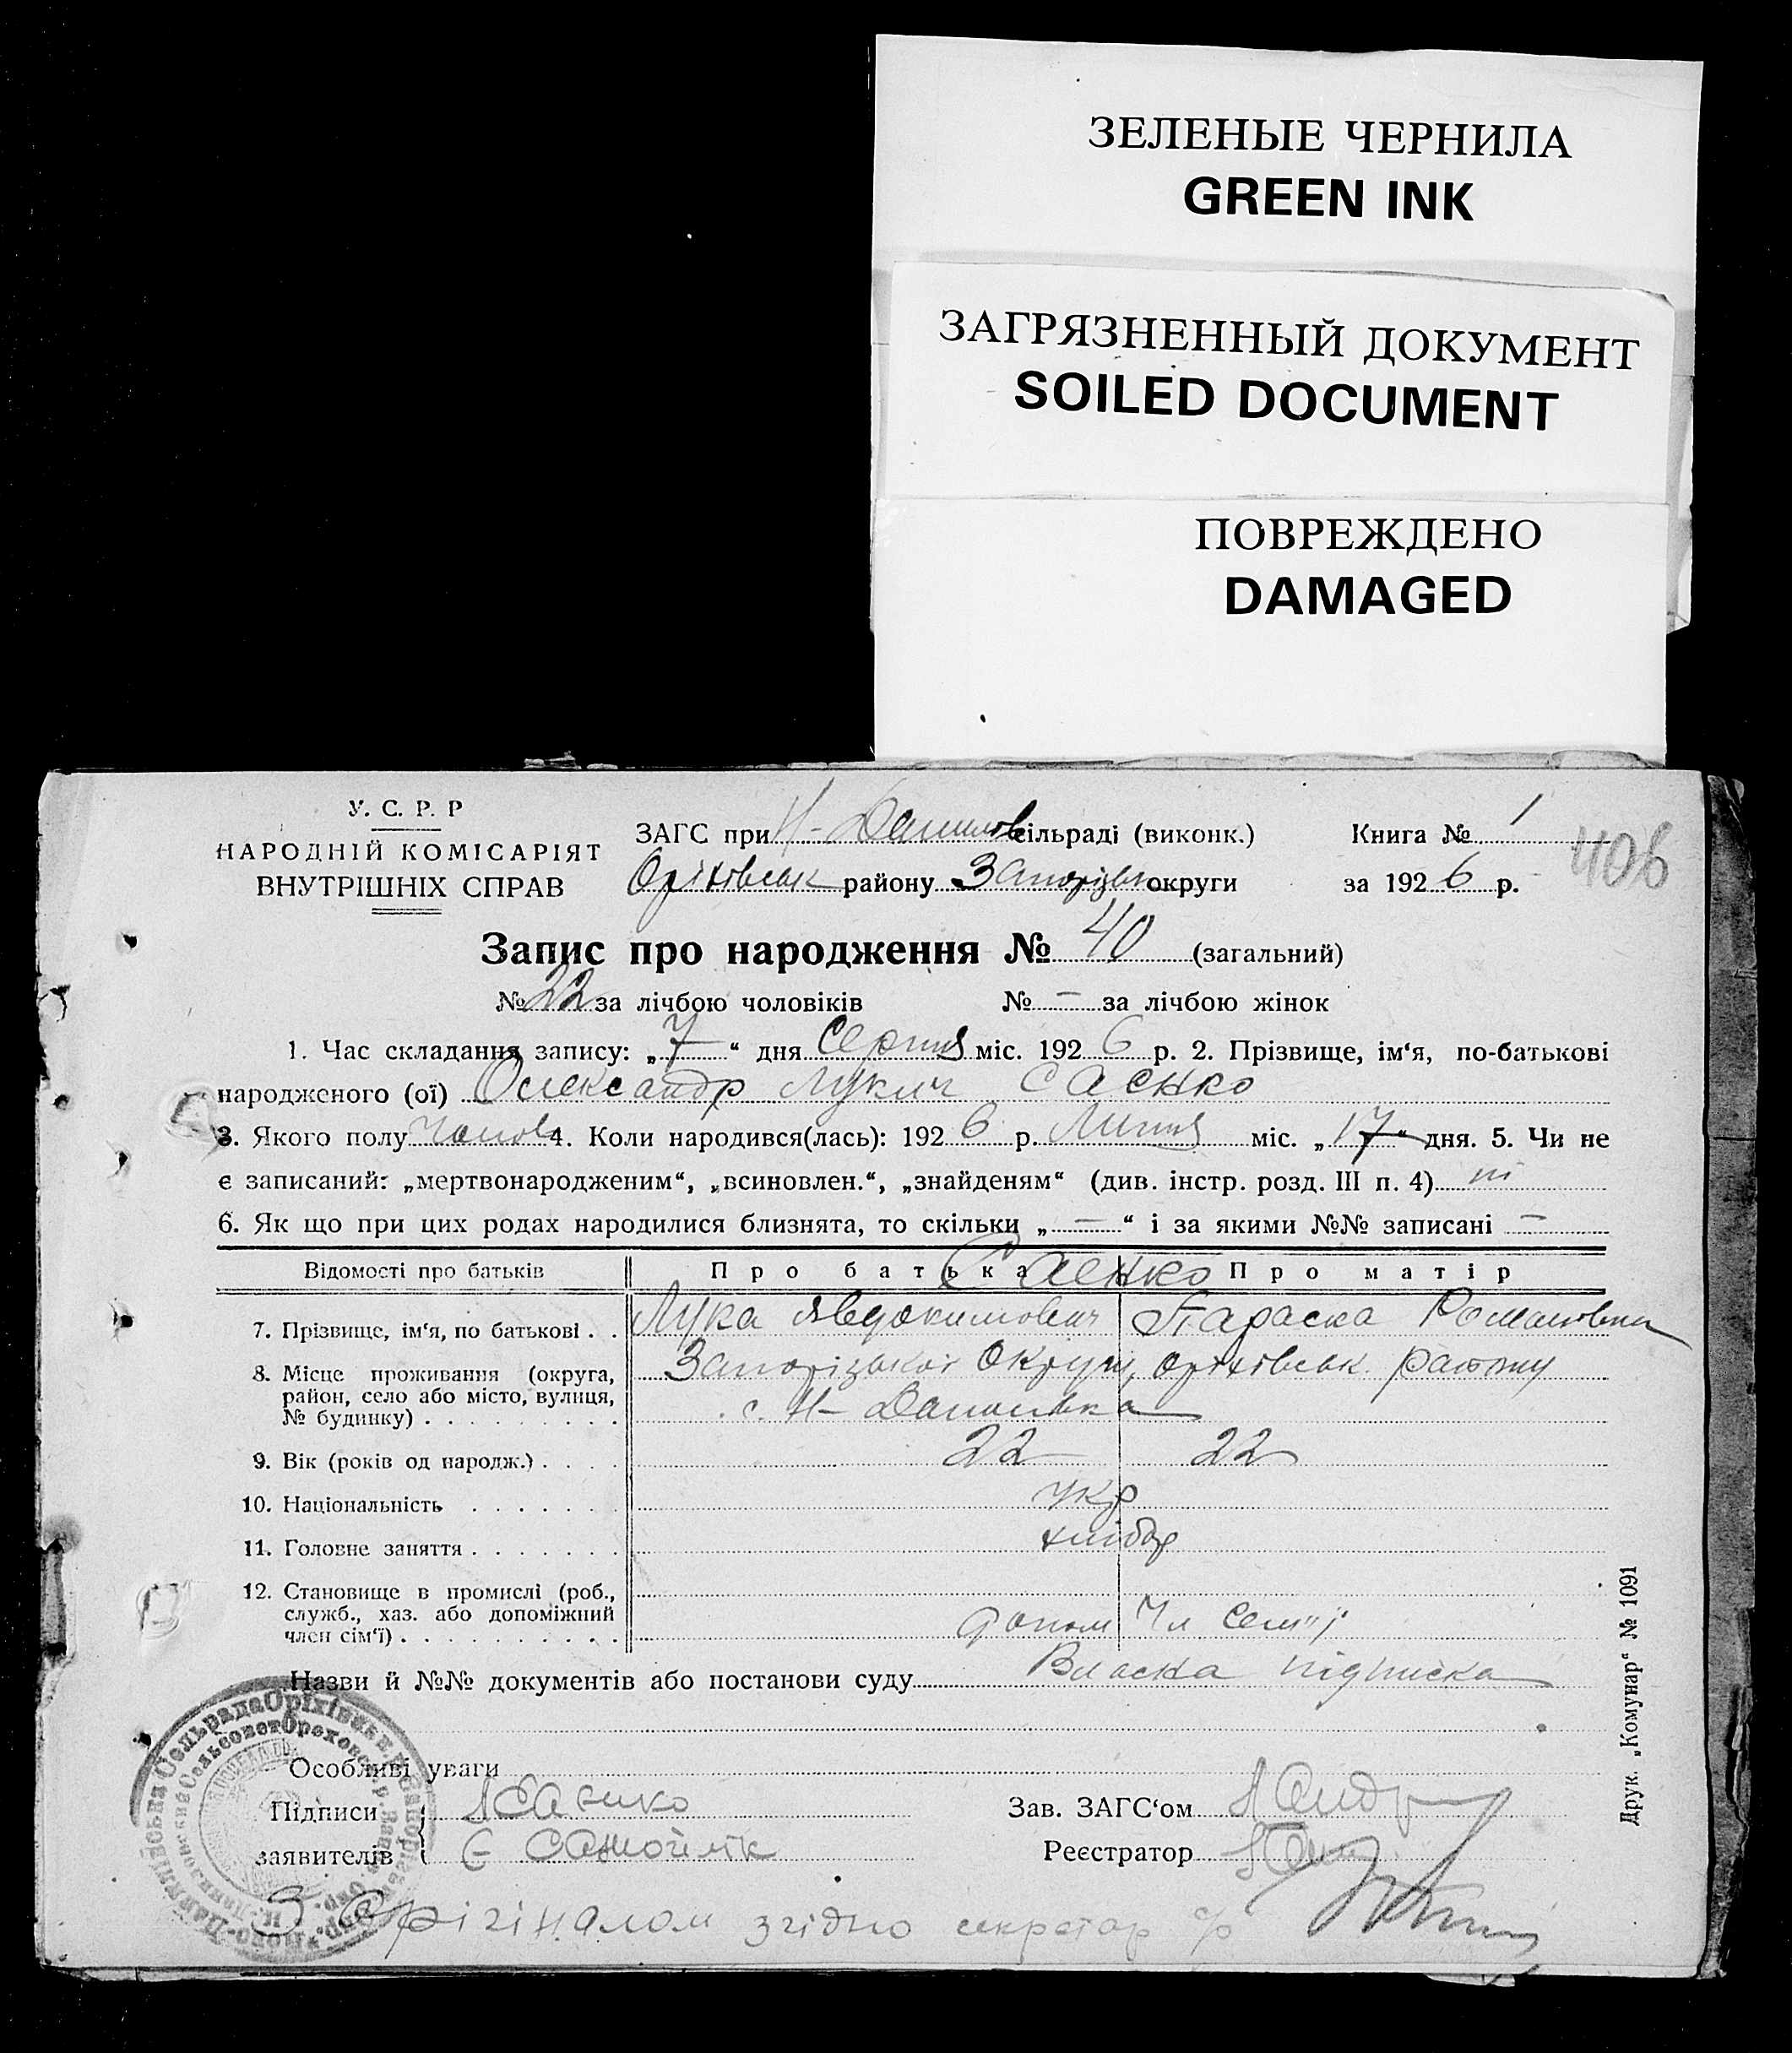 ЗЕЛЕНЫЕ ЧЕРНИЛА
GREEN INK
ЗАГРЯЗНЕННЫЙ ДОКУМЕНТ
SOILED DOCUMENT
ПОВРЕЖДЕНО
DAMAGED
У. С. Р. Р
НАРОДНІЙ КОМІСАРІЯТ
ВНУТРІШНІХ СПРАВ
ЗАГС при Н-Данилов сільраді (виконк.)
Оріхівськ району Запорізьк округи
Книга № 1
за 1926 р.
406
Запис про народження № 40 (загальний)
№ 22 за лічбою чоловіків № – за лічбою жінок
1. Час складання запису: „7“ дня Серпня міс. 1926 р. 2. Прізвище, ім‘я, по-батькові
народженого (ої) Олександр Лукич Саєнко
3. Якого полу чолов 4. Коли народився(лась): 1926 р. Липня міс. „17“ дня. 5. Чи не
є записаний: „мертвонародженим“, „всиновлен.“, „знайденям“ (див. інстр. розд. III п. 4) ні
6. Як що при цих родах народилися близнята, то скільки „–“ і за якими №№ записані –
Відомості про батьків Про батька Саєнко Про матір
7. Прізвище, ім‘я, по батькові . . Лука Явдокимович Параска Романовна
8. Місце проживання (округа, район, село або місто, вулиця, № будинку) . . . . . . . . . Запорізької Округи, Оріхівськ. району
с. Н-Данилівка
9. Вік (років од народж.) . . . . 22 22
10. Національність . . . . . . . укр
11. Головне заняття . . . . . . . хлібор
12. Становище в промислі (роб., служб., хаз. або допоміжний член сім‘ї) . . . . . . . . . . допом Чл семї
Назви й №№ документів або постанови суду Власна підписка
Особливі уваги
Підписи заявителів { Л Саєнко
Є Самойлік
Зав. ЗАГС‘ом
Реєстратор
З Орігіналом згідно секретар с/р
Друк. „Комунар“ № 1091